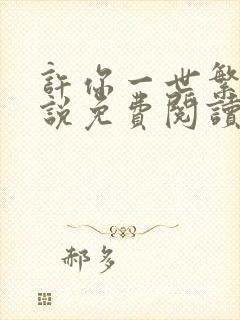 許你一世繁
說免費閱讀
郝多